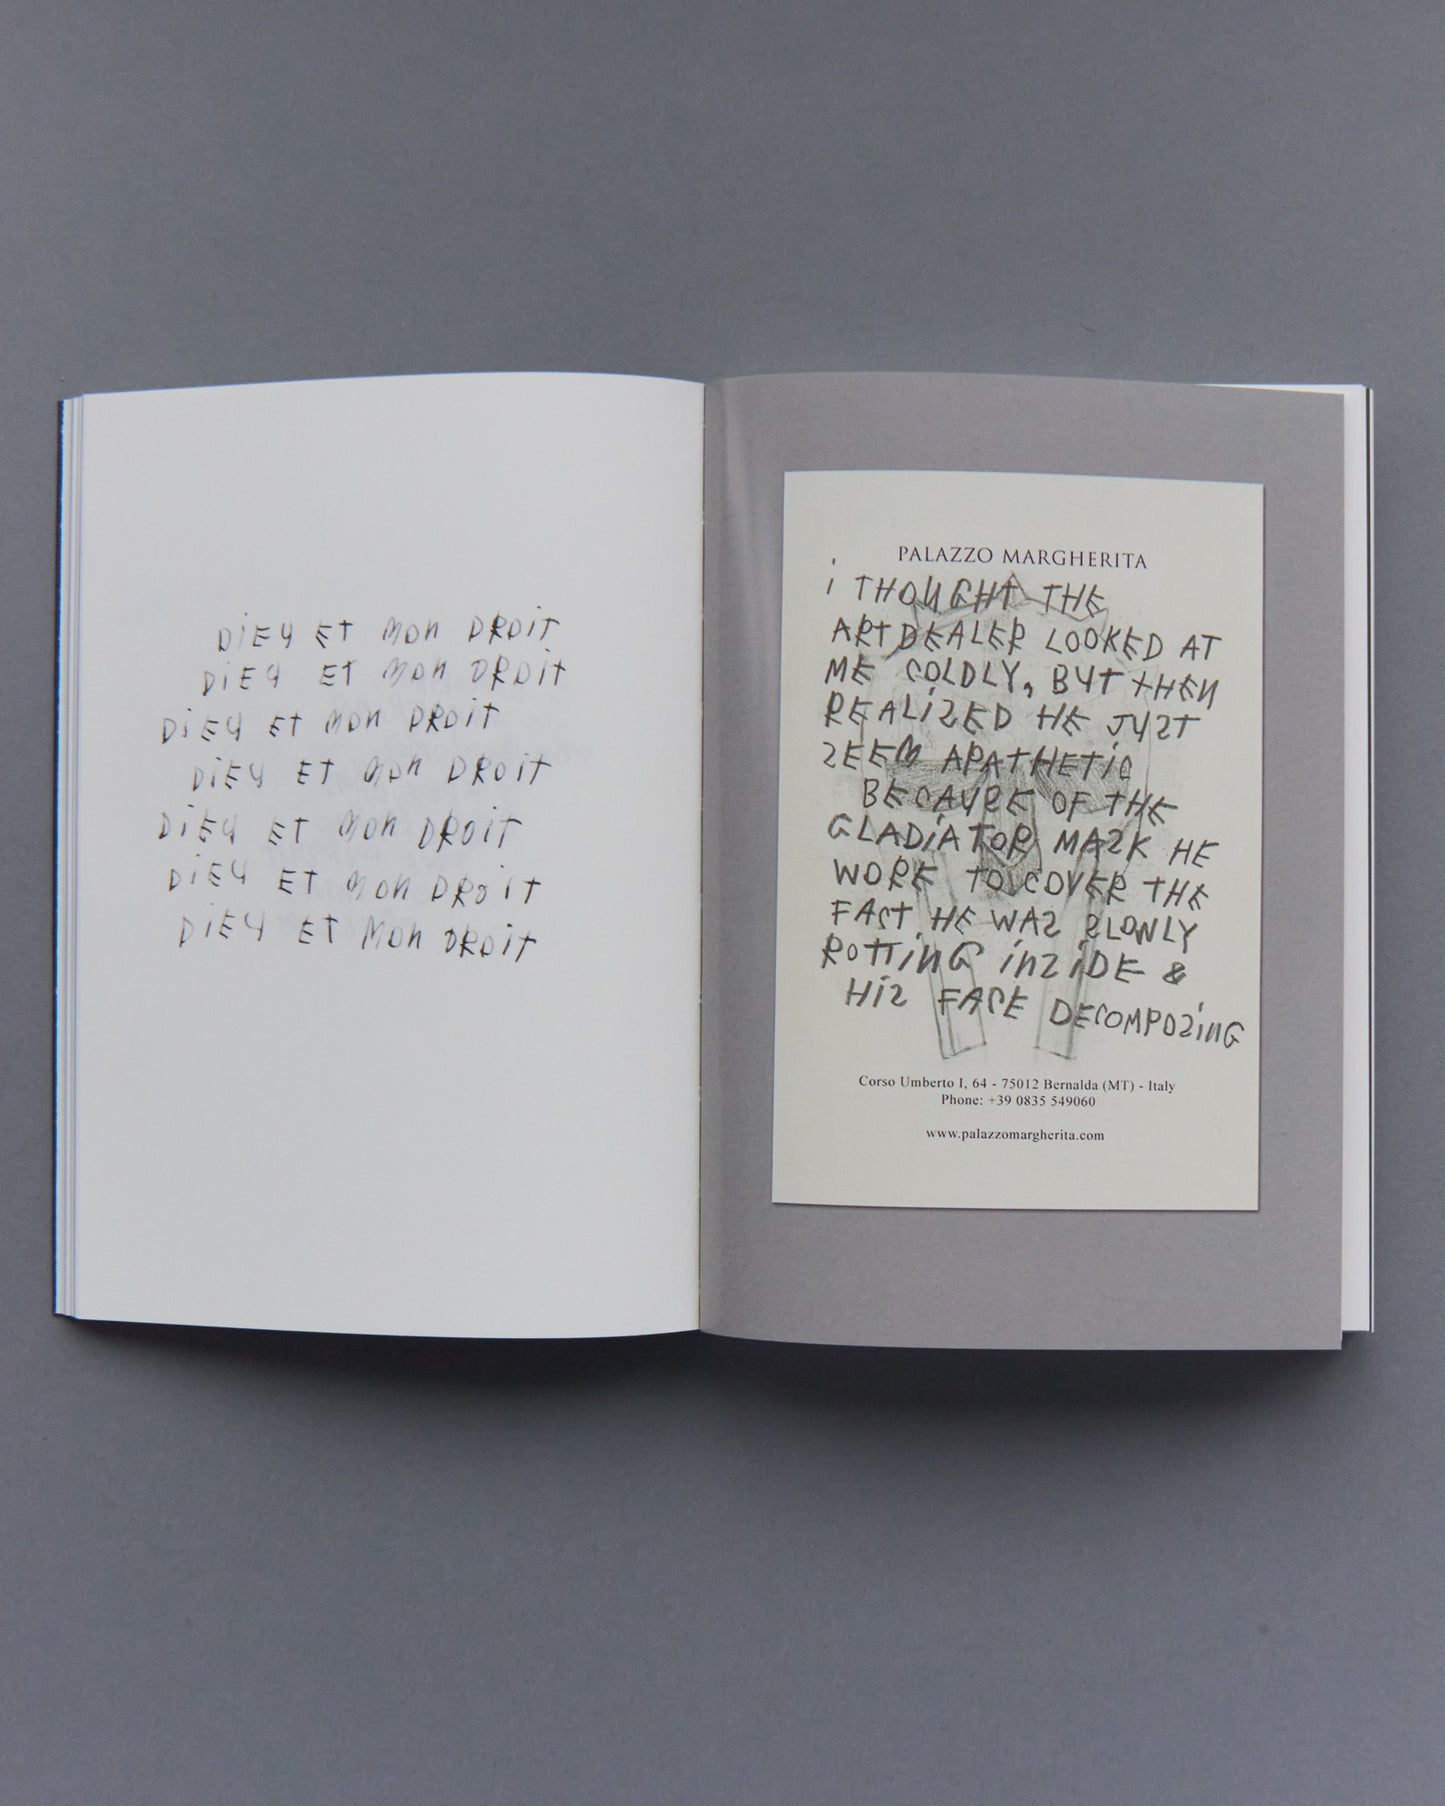 DiEU ET MON DROiT
DiEU ET MON DROiT
DiEU ET MON DROiT
DiEU ET MON DROiT
DiEU ET MON DROiT
DiEU ET MON DROiT
DiEU ET MON DROiT
PALAZZO MARGHERITA
i THOUGHT THE
ARTDEALER LOOKED AT
ME COLDLY, BUT THEN
REALiSED HE JUST
SEEM APATHETiC
BECAUSE OF THE
GLADiATOR MASK HE
WORE TO COVER THE
FACT HE WAS SLOWLY
ROTTiNG iNSiDE &
HiS FACE DECOMPOSiNG
Corso Umberto I, 64 - 75012 Bernalda (MT) - Italy
Phone: +39 0835 549060
www.palazzomargherita.com